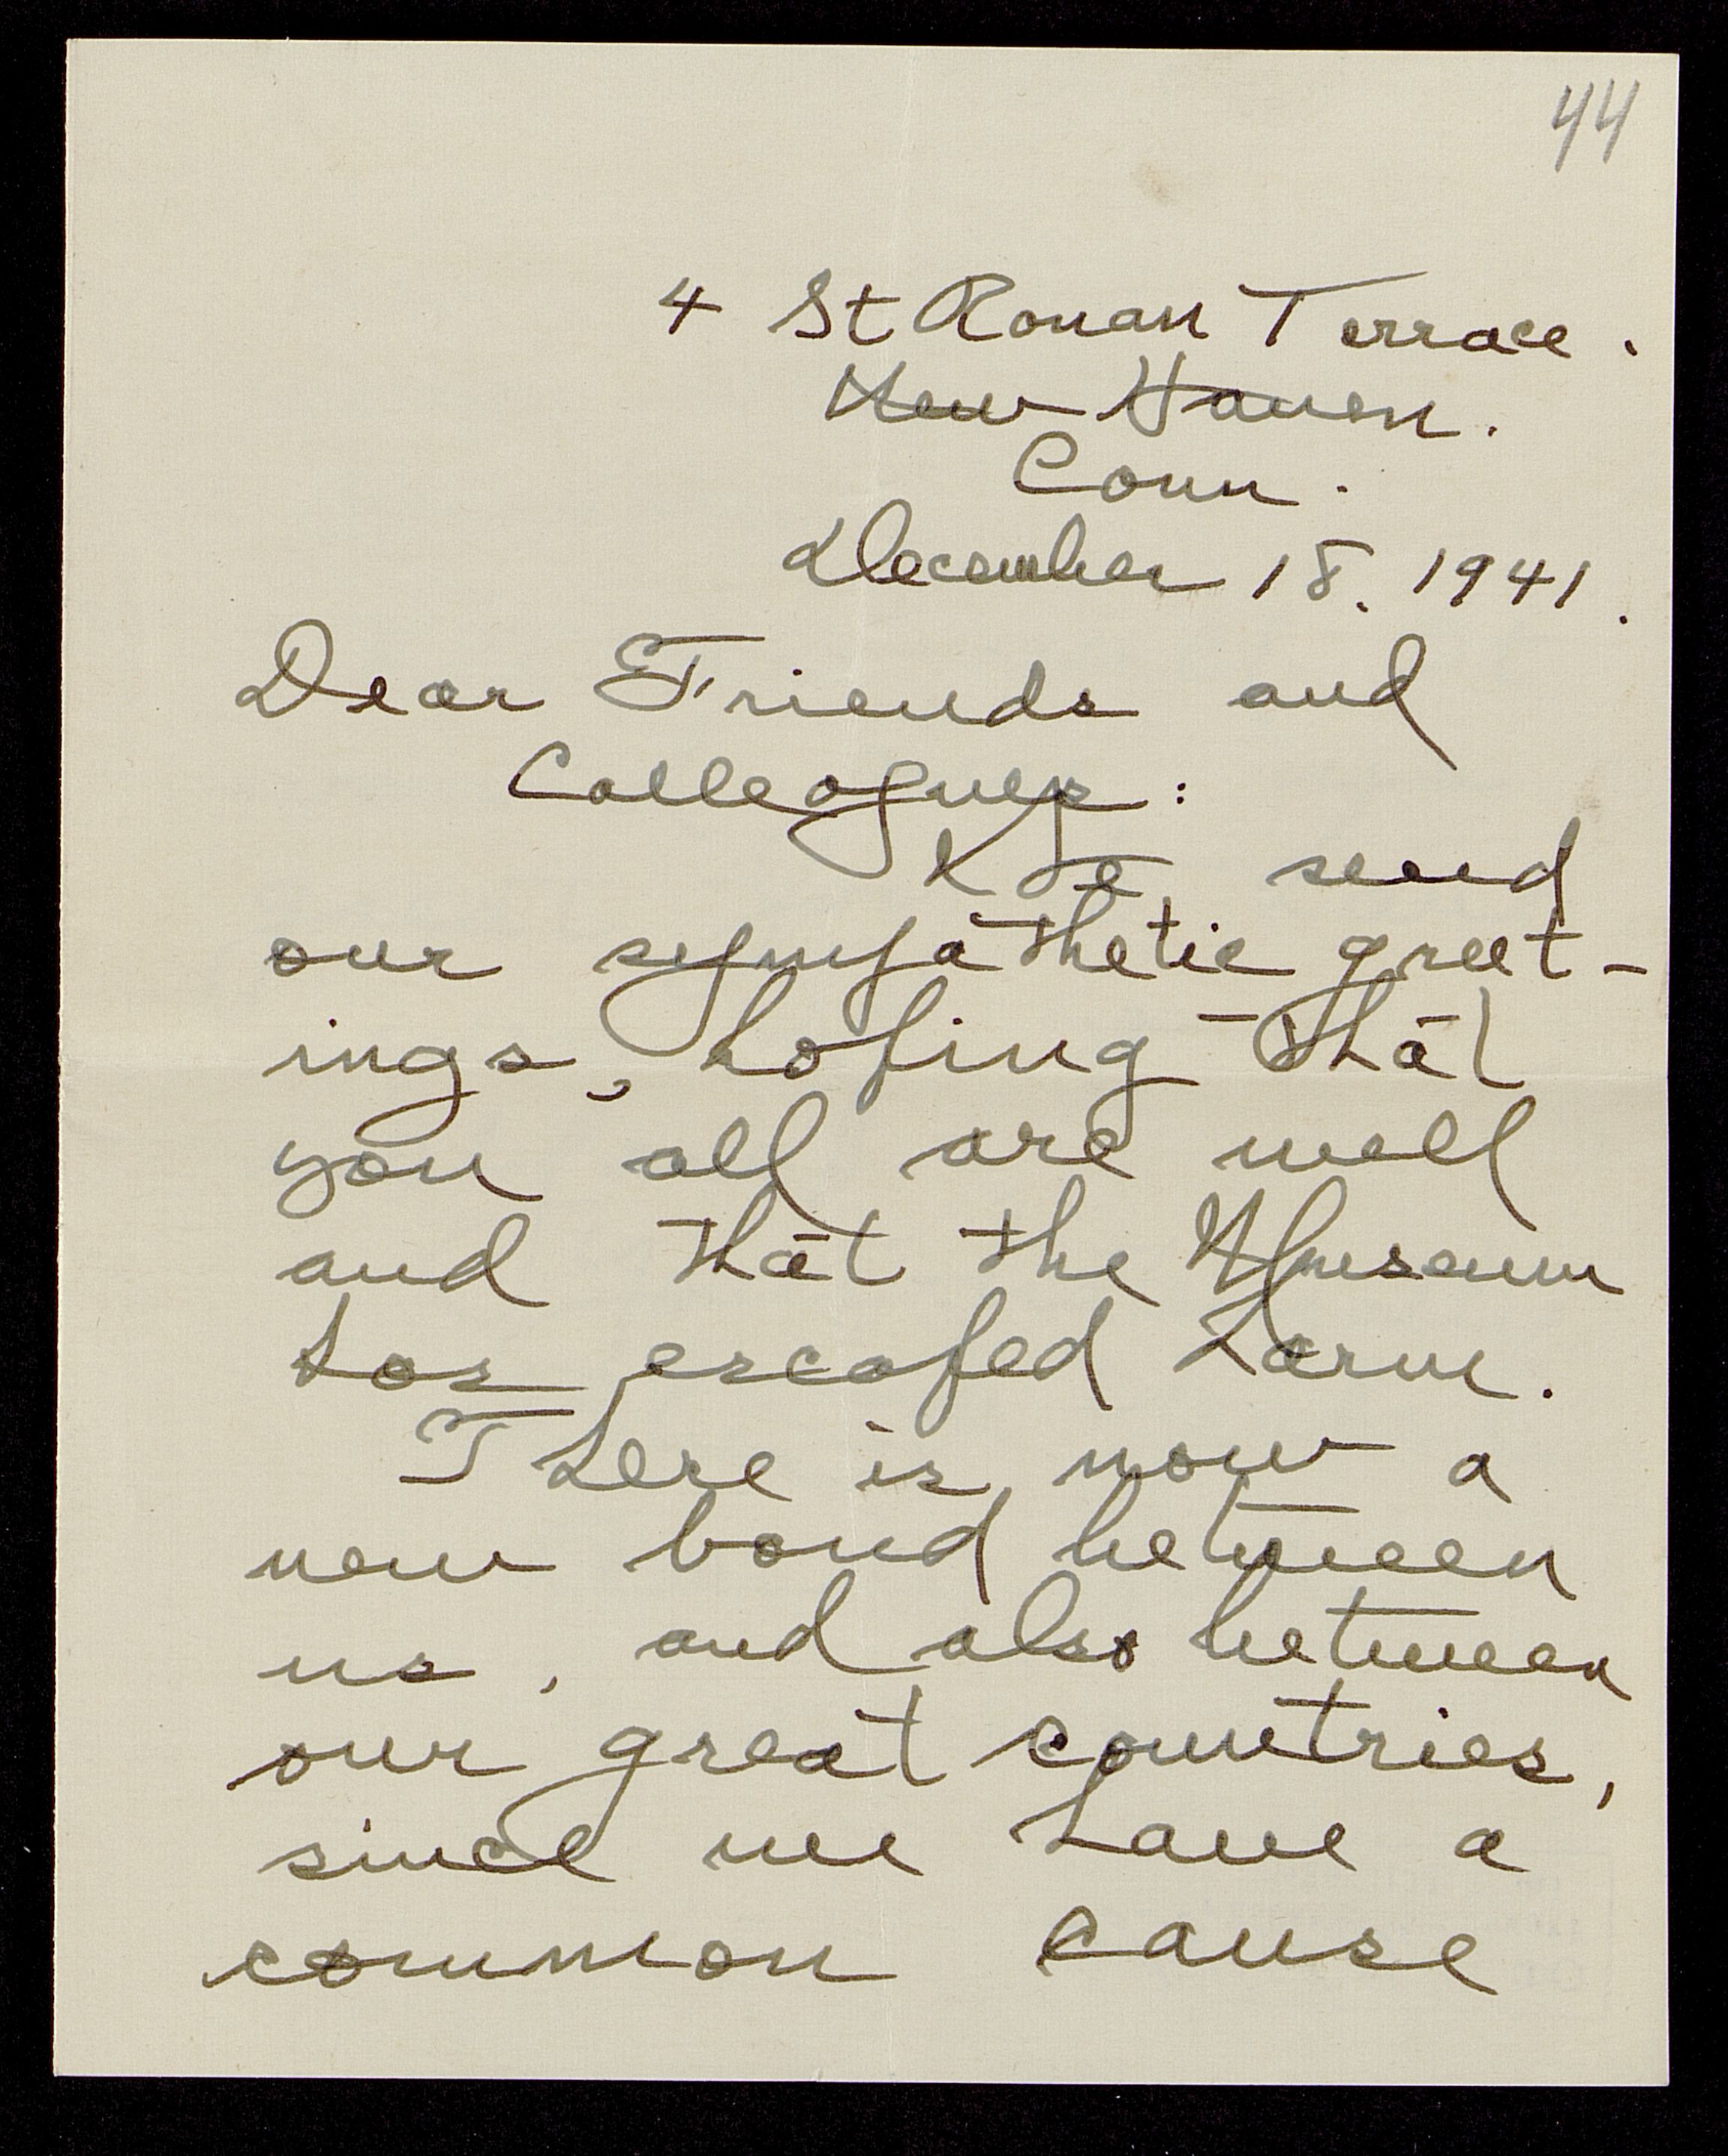 44
4 St Ronan Terrace.
New Haven.
Conn.
December 18. 1941.
Dear Friends and
Colleagues:
We send
our sympathetic greet-
ings, hoping that
you all are well
and that the Museum
has escaped harm.
There is now a
new bond between
us, and also between
our great countries,
since we have a
common cause